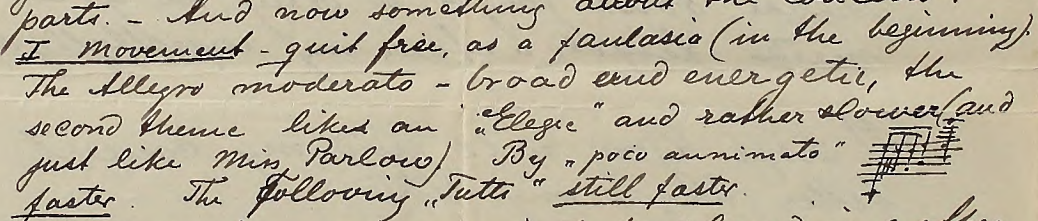 parts. – And now something about the
I Movement – quit free, as a fantasia (in the beginning).
The Allegro moderato – broad and energetic, the
second theme likes an „Elegie" and rather slower (and
just like Miss Parlow) By „poco annimato"
faster. The following „Tutti" still faster.